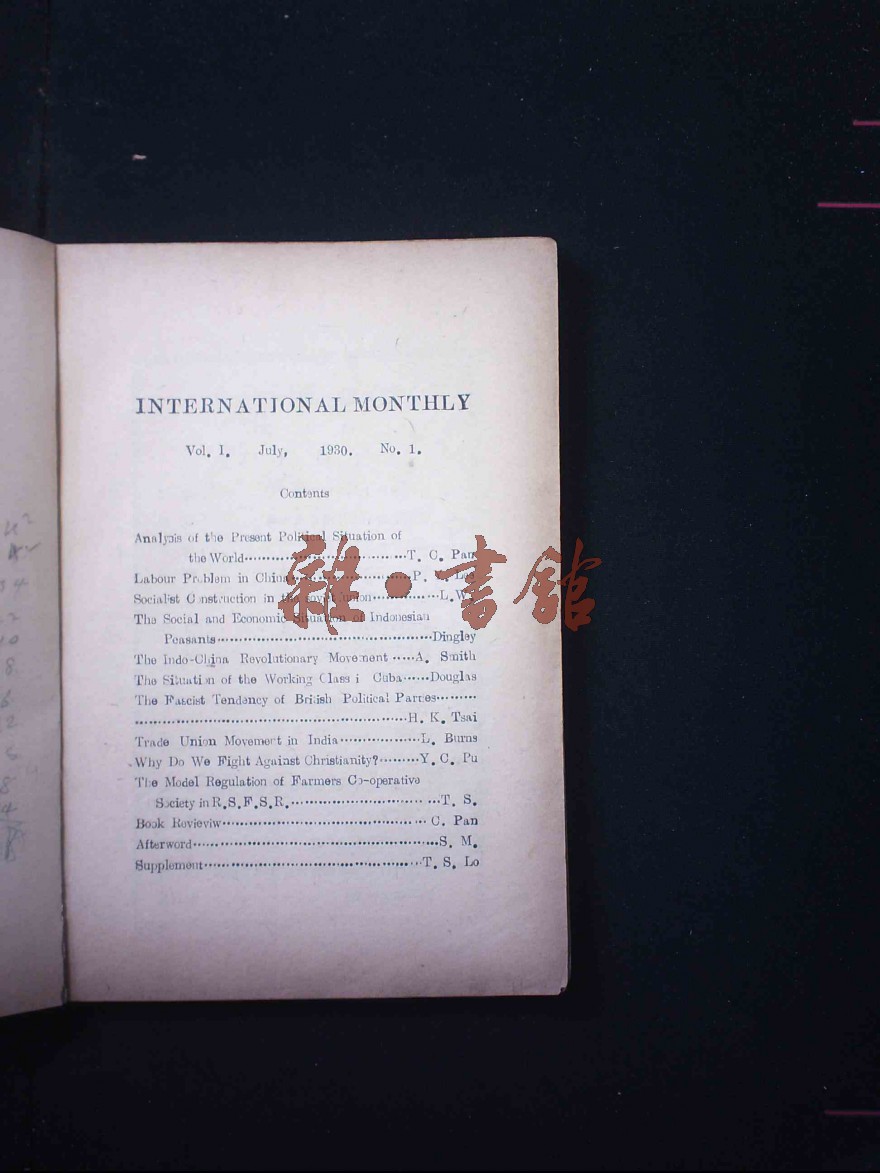 INTERNATIONAL MONTHLY
Vol. I. July, 1930. No. 1.
Contents
Analysis of the Present Political Situation of
the World T. C. Pan
Labour Problem in China P.
Socialist Construction in the Soviet Union L. W.
The Social and Economic Situation of Indonesian
Peasants Dingley
The Indo-China Revolutionary Movement A. Smith
The Situation of the Working Class i Cuba Douglas
The Fascist Tendency of British Political Parties
H. K. Tsai
Trade Union Movement in India L. Burns
Why Do We Fight Against Christianity? Y. C. Pu
The Model Regulation of Farmers Co-operative
Society in R.S.F.S.R. T. S.
Book Revieviw C. Pan
Afterword S. M.
Supplement T. S. Lo
雜·書館